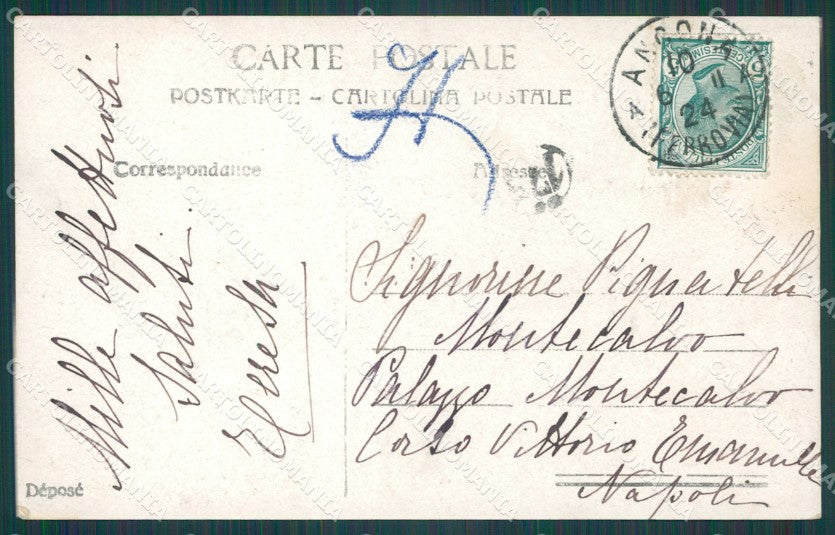 CARTE POSTALE
POSTKARTE – CARTOLINA POSTALE
Correspondance
Adresse
Mille affettuosi
saluti
Teresa
Signorine Pignatelli
Montecalvo
Palazzo Montecalvo
Corso Vittorio Emanuele
Napoli
Déposé
ANCONA
10
6 11
24
(FERROVIA)
CARTOLINOMANIA